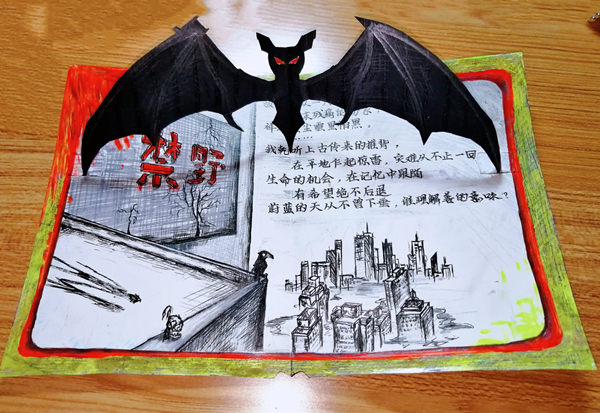 禁野
我聆听上古传来的推背，
在平地乍起惊雷，灾难从不止一回
生命的机会，在记忆中跟随
有希望绝不后退
蔚蓝的天从不曾下坠，谁理解善的意味？